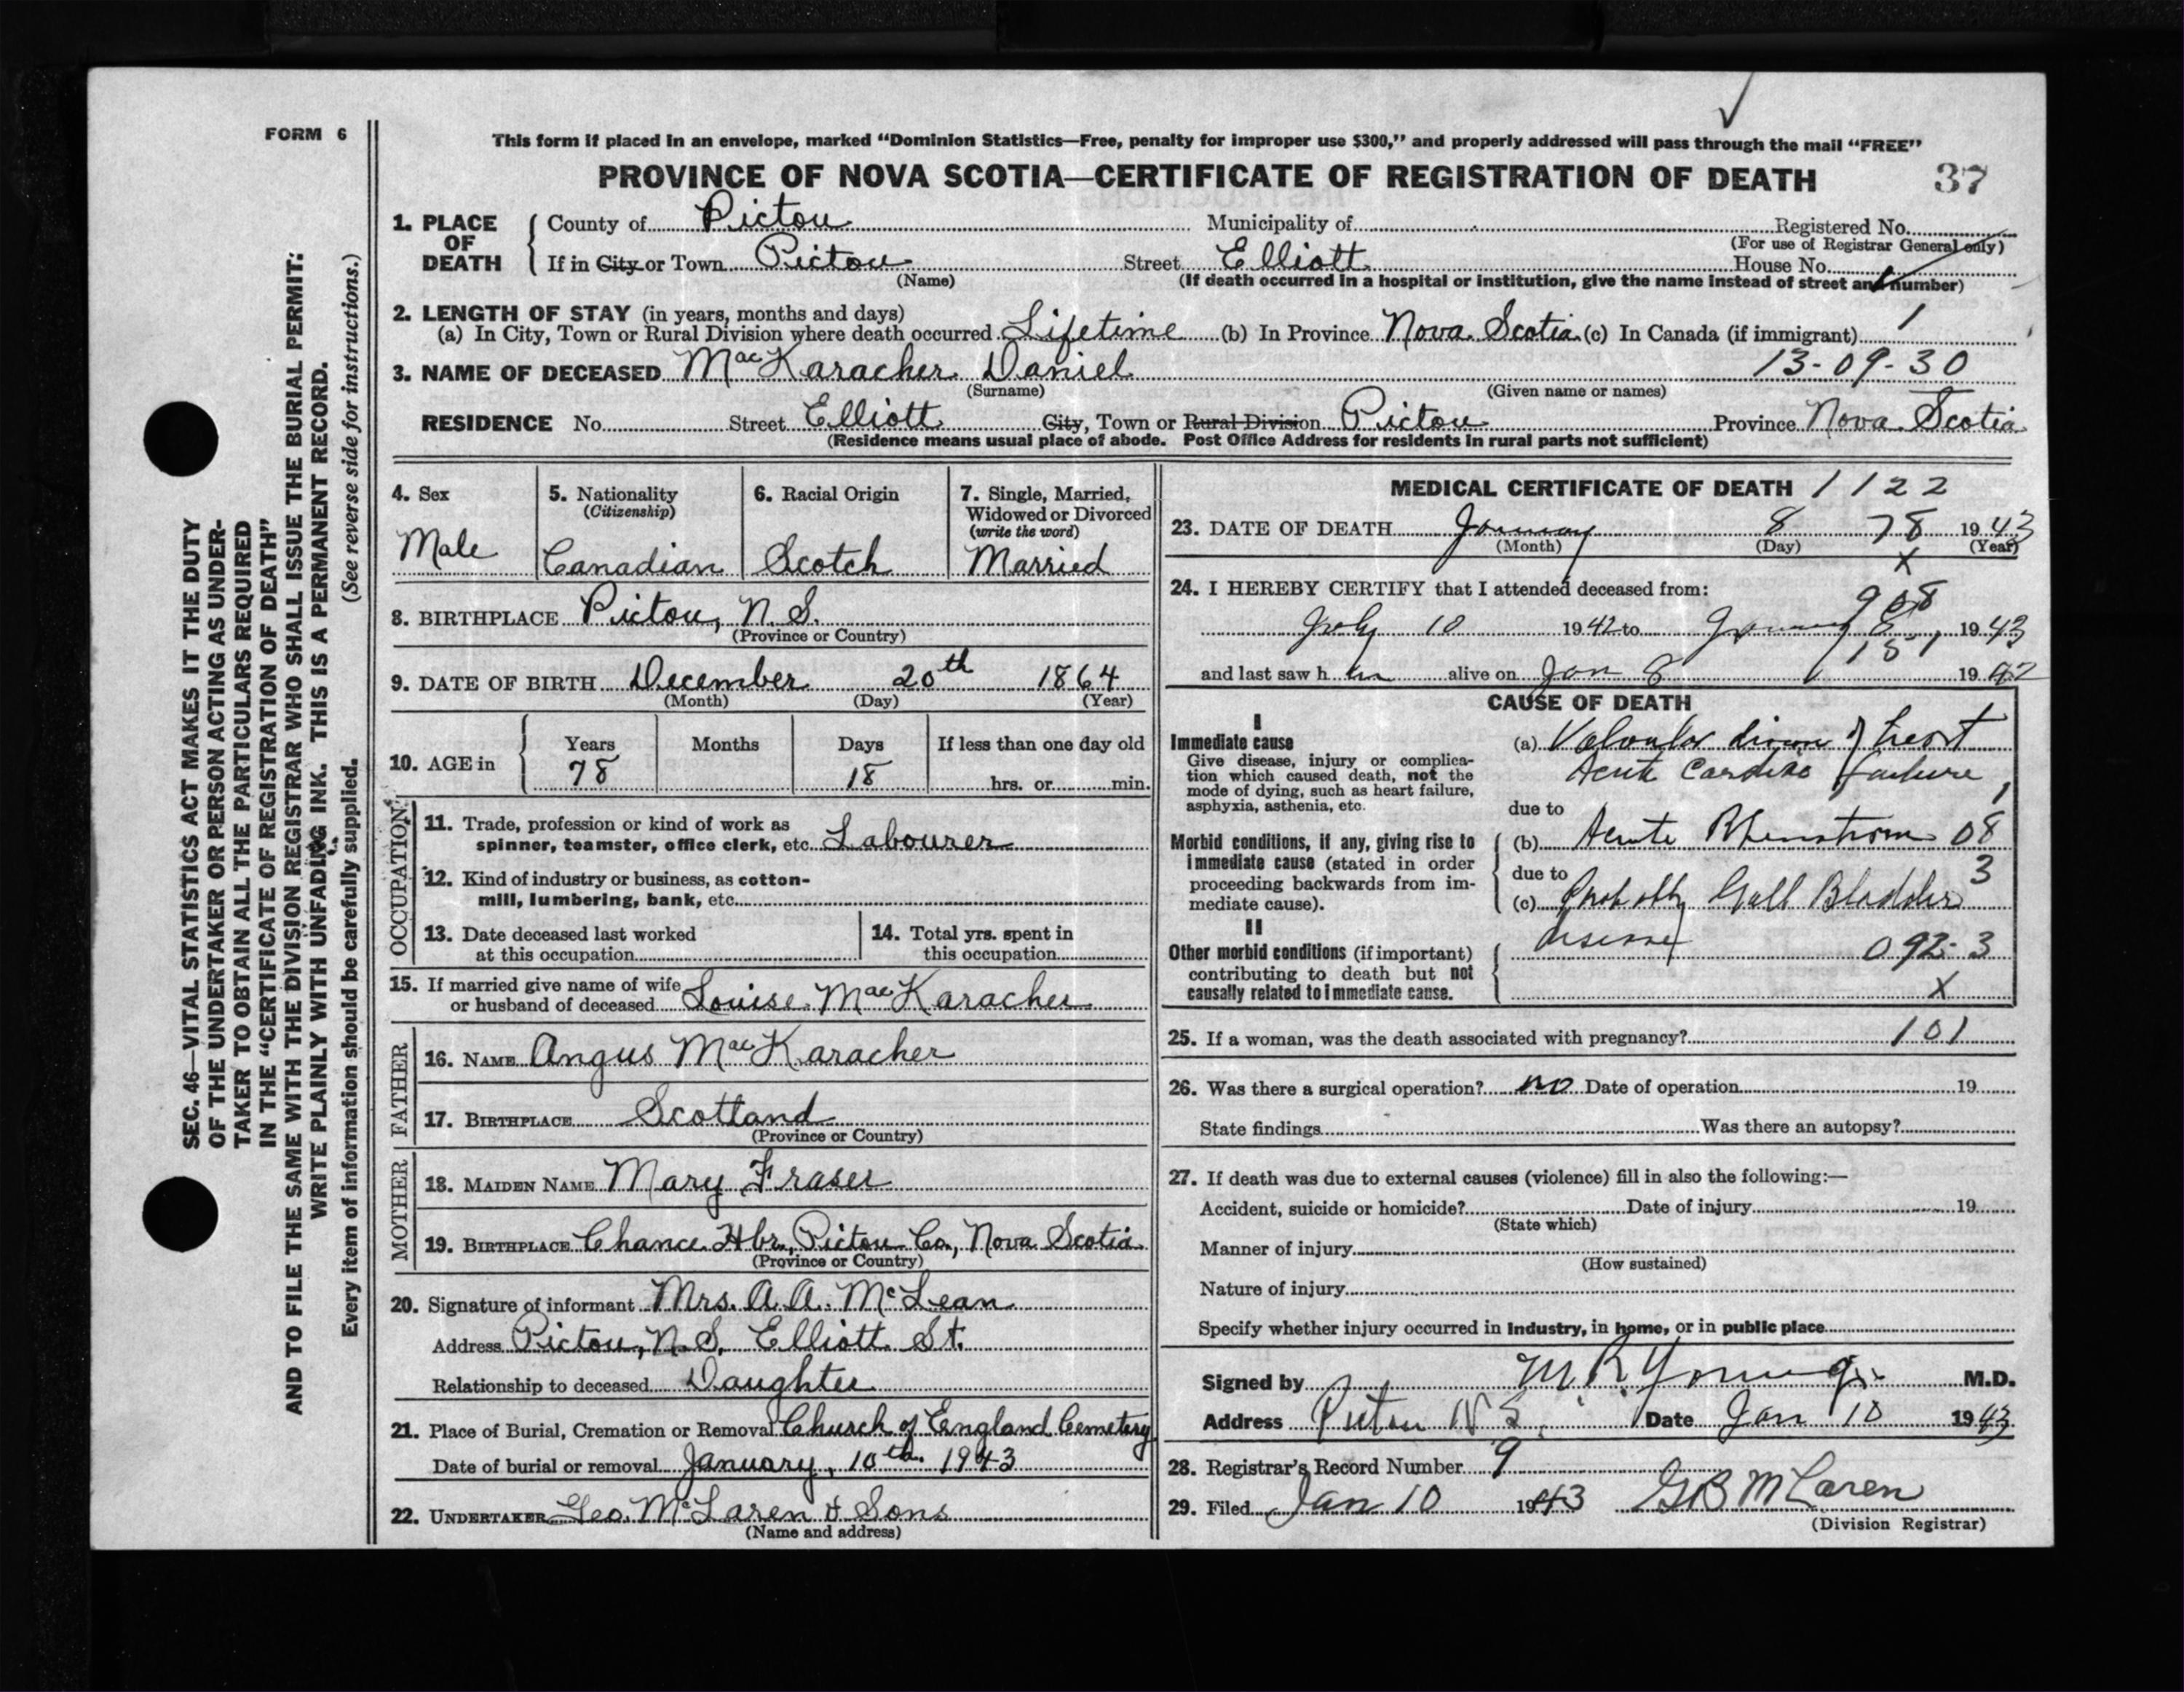 FORM 6
This form if placed in an envelope, marked “Dominion Statistics—Free, penalty for improper use $300,” and properly addressed will pass through the mail “FREE”
PROVINCE OF NOVA SCOTIA—CERTIFICATE OF REGISTRATION OF DEATH 37
1. PLACE OF DEATH
County of Pictou Municipality of Registered No.
(For use of Registrar General only)
If in City or Town Pictou Street Elliott House No.
(Name) (If death occurred in a hospital or institution, give the name instead of street and number)
2. LENGTH OF STAY (in years, months and days)
(a) In City, Town or Rural Division where death occurred Lifetime (b) In Province Nova Scotia (c) In Canada (if immigrant) 1
3. NAME OF DECEASED MacKaracher Daniel 13-09-30
(Surname) (Given name or names)
RESIDENCE No. Street Elliott City, Town or Rural Division Pictou Province Nova Scotia
(Residence means usual place of abode. Post Office Address for residents in rural parts not sufficient)
4. Sex
Male
5. Nationality
(Citizenship)
Canadian
6. Racial Origin
Scotch
7. Single, Married,
Widowed or Divorced
(write the word)
Married
8. BIRTHPLACE Pictou, N.S.
(Province or Country)
9. DATE OF BIRTH December 20th 1864
(Month) (Day) (Year)
10. AGE in
Years Months Days If less than one day old
78 18 hrs. or min.
OCCUPATION
11. Trade, profession or kind of work as
spinner, teamster, office clerk, etc. Labourer
12. Kind of industry or business, as cotton-
mill, lumbering, bank, etc.
13. Date deceased last worked
at this occupation
14. Total yrs. spent in
this occupation
15. If married give name of wife
or husband of deceased Louise MacKaracher
FATHER
16. NAME Angus MacKaracher
17. BIRTHPLACE Scotland
(Province or Country)
MOTHER
18. MAIDEN NAME Mary Fraser
19. BIRTHPLACE Chance Hbr, Pictou Co, Nova Scotia
(Province or Country)
20. Signature of informant Mrs. A. A. McLean
Address Pictou, N.S. Elliott St.
Relationship to deceased Daughter
21. Place of Burial, Cremation or Removal Church of England Cemetery
Date of burial or removal January, 10th. 1943
22. UNDERTAKER Geo. McLaren & Sons
(Name and address)
MEDICAL CERTIFICATE OF DEATH 1122
23. DATE OF DEATH January 8 78 1943
(Month) (Day) (Year)
X
24. I HEREBY CERTIFY that I attended deceased from:
908
July 10 1942 to January 8, 1943
151
and last saw h im alive on Jan 8 1942
CAUSE OF DEATH
I
Immediate cause
Give disease, injury or complica-
tion which caused death, not the
mode of dying, such as heart failure,
asphyxia, asthenia, etc.
(a) Valvular disease of heart
Acute Cardiac failure
1
due to
Morbid conditions, if any, giving rise to
immediate cause (stated in order
proceeding backwards from im-
mediate cause).
(b) Acute Rheumatism 08
due to 3
(c) Probably Gall Bladder
disease
II
Other morbid conditions (if important)
contributing to death but not
causally related to immediate cause.
092-3
X
25. If a woman, was the death associated with pregnancy? 101
26. Was there a surgical operation? no Date of operation 19
State findings Was there an autopsy?
27. If death was due to external causes (violence) fill in also the following:—
Accident, suicide or homicide? Date of injury 19
(State which)
Manner of injury
(How sustained)
Nature of injury
Specify whether injury occurred in Industry, in home, or in public place
Signed by M. R. Young M.D.
Address Pictou N S. Date Jan 10 1943
28. Registrar's Record Number 9
29. Filed Jan 10 1943 GB McLaren
(Division Registrar)
SEC. 46—VITAL STATISTICS ACT MAKES IT THE DUTY
OF THE UNDERTAKER OR PERSON ACTING AS UNDER-
TAKER TO OBTAIN ALL THE PARTICULARS REQUIRED
IN THE “CERTIFICATE OF REGISTRATION OF DEATH”
AND TO FILE THE SAME WITH THE DIVISION REGISTRAR WHO SHALL ISSUE THE BURIAL PERMIT:
WRITE PLAINLY WITH UNFADING INK. THIS IS A PERMANENT RECORD.
Every item of information should be carefully supplied. (See reverse side for instructions.)